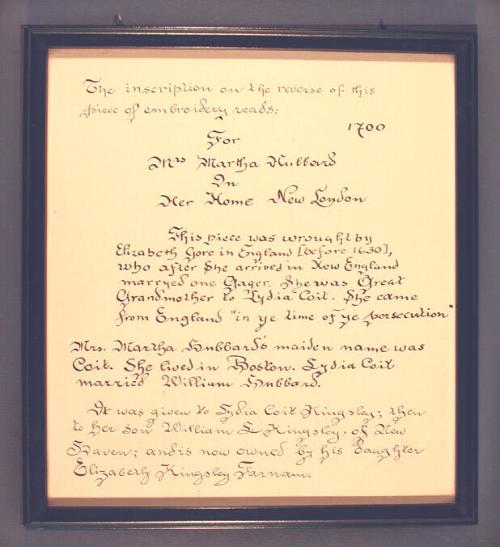 The inscription on the reverse of this
piece of embroidery reads:
1700
For
Mrs Martha Hubbard
In
Her Home New London
This piece was wrought by
Elizabeth Gore in England [before 1630],
who after she arrived in New England
marryed one Gager. She was Great
Grandmother to Lydia Coit. She came
from England "in ye time of ye persecution"
Mrs. Martha Hubbard's maiden name was
Coit. She lived in Boston. Lydia Coit
married William Hubbard.
It was given to Lydia Coit Kingsley; then
to her son William L Kingsley, of New
Haven; and is now owned by his daughter
Elizabeth Kingsley Farnam.